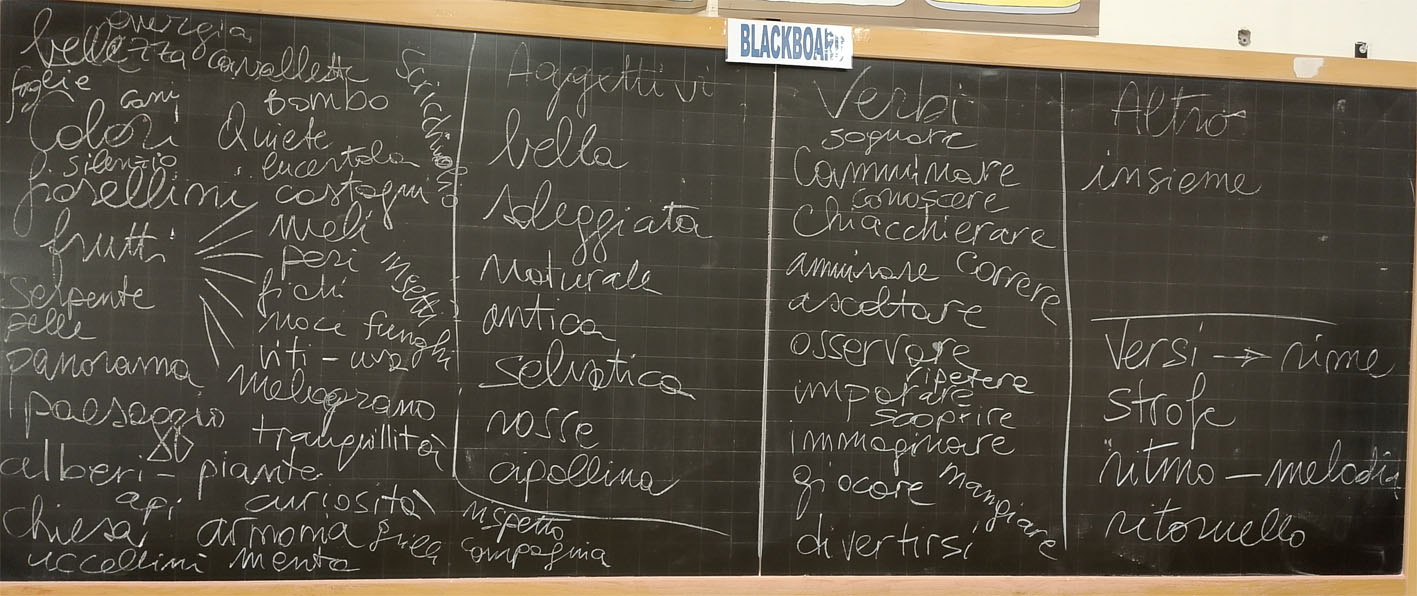 BLACKBOARD
energia
bellezza cavallette
foglie
cani bombo
Colori Quiete
Scricchiolio
silenzio lucertola
fiorellini castagni
frutti meli
peri
insetti
serpente fichi
pelle noci funghi
panorama viti - uva
paesaggio melograno
tranquillità
alberi - piante
api curiosità
chiesa armonia grilli
uccellini menta
rispetto
compagnia
Aggettivi
bella
soleggiata
naturale
antica
selvatica
rosse
cipollina
Verbi
sognare
Camminare
conoscere
Chiacchierare
ammirare correre
ascoltare
osservare
ripetere
imparare
scoprire
immaginare
giocare mangiare
divertirsi
Altro
insieme
Versi → rime
strofe
ritmo - melodia
ritornello